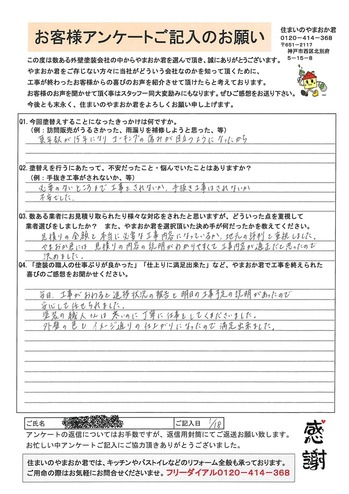 お客様アンケートご記入のお願い
住まいのやまおか君
0120-414-368
〒651-2117
神戸市西区北別府
5-15-8
この度は数ある外壁塗装会社の中からやまおか君を選んで頂き、誠にありがとうございます。
やまおか君をご存じない方々に当社がどういう会社なのかを知って頂くために、
工事が終わったお客様からの喜びのお声を紹介させて頂けたらと考えております。
お客様のお声を聞かせて頂く事はスタッフ一同大変励みにもなります。ぜひご感想をお送り下さい。
今後とも末永く、住まいのやまおか君をよろしくお願い申し上げます。
Q1. 今回塗替えすることになったきっかけは何ですか。
(例:訪問販売がうるさかった、雨漏りを補修しようと思った、等)
築年数が15年になりコーキングの痛みが目立つようになったから
Q2. 塗替えを行うにあたって、不安だったこと・悩んでいたことはありますか?
(例:手抜き工事がされないか、等)
必要のないところまで工事をされないか、手抜き工事はされないか
不安でした。
Q3. 数ある業者にお見積り取られたり様々な対応をされたと思いますが、どういった点を重視して
業者選びをしましたか? また、やまおか君を選択頂いた決め手が何だったかを教えてください。
見積りの金額と本当に必要な工事内容になっているか、地元の評判を重視しました。
やまおか君には見積りの内容の説明がわかりやすくて工事内容が適正だと思ったので
決めました。
Q4.「塗装の職人の仕事ぶりが良かった」「仕上りに満足出来た」など、やまおか君で工事を終えられた
喜びのご感想をお聞かせください。
毎日、工事がおわると進捗状況の報告と明日の工事予定の説明があったので
安心して任せられました。
塗装の職人さんは寒いのに丁寧に仕事をしてくださいました。
外壁の色もイメージ通りの仕上がりになったので満足出来ました。
ご氏名
ご記入日 1/18
アンケートの返信についてはお手数ですが、返信用封筒にてご返送お願い致します。
お忙しい中アンケートにご協力頂きありがとうございました。
感謝
住まいのやまおか君では、キッチンやバストイレなどのリフォーム全般も承っております。
ご用命の際はお気軽にお問合せくださいませ。フリーダイアル0120-414-368